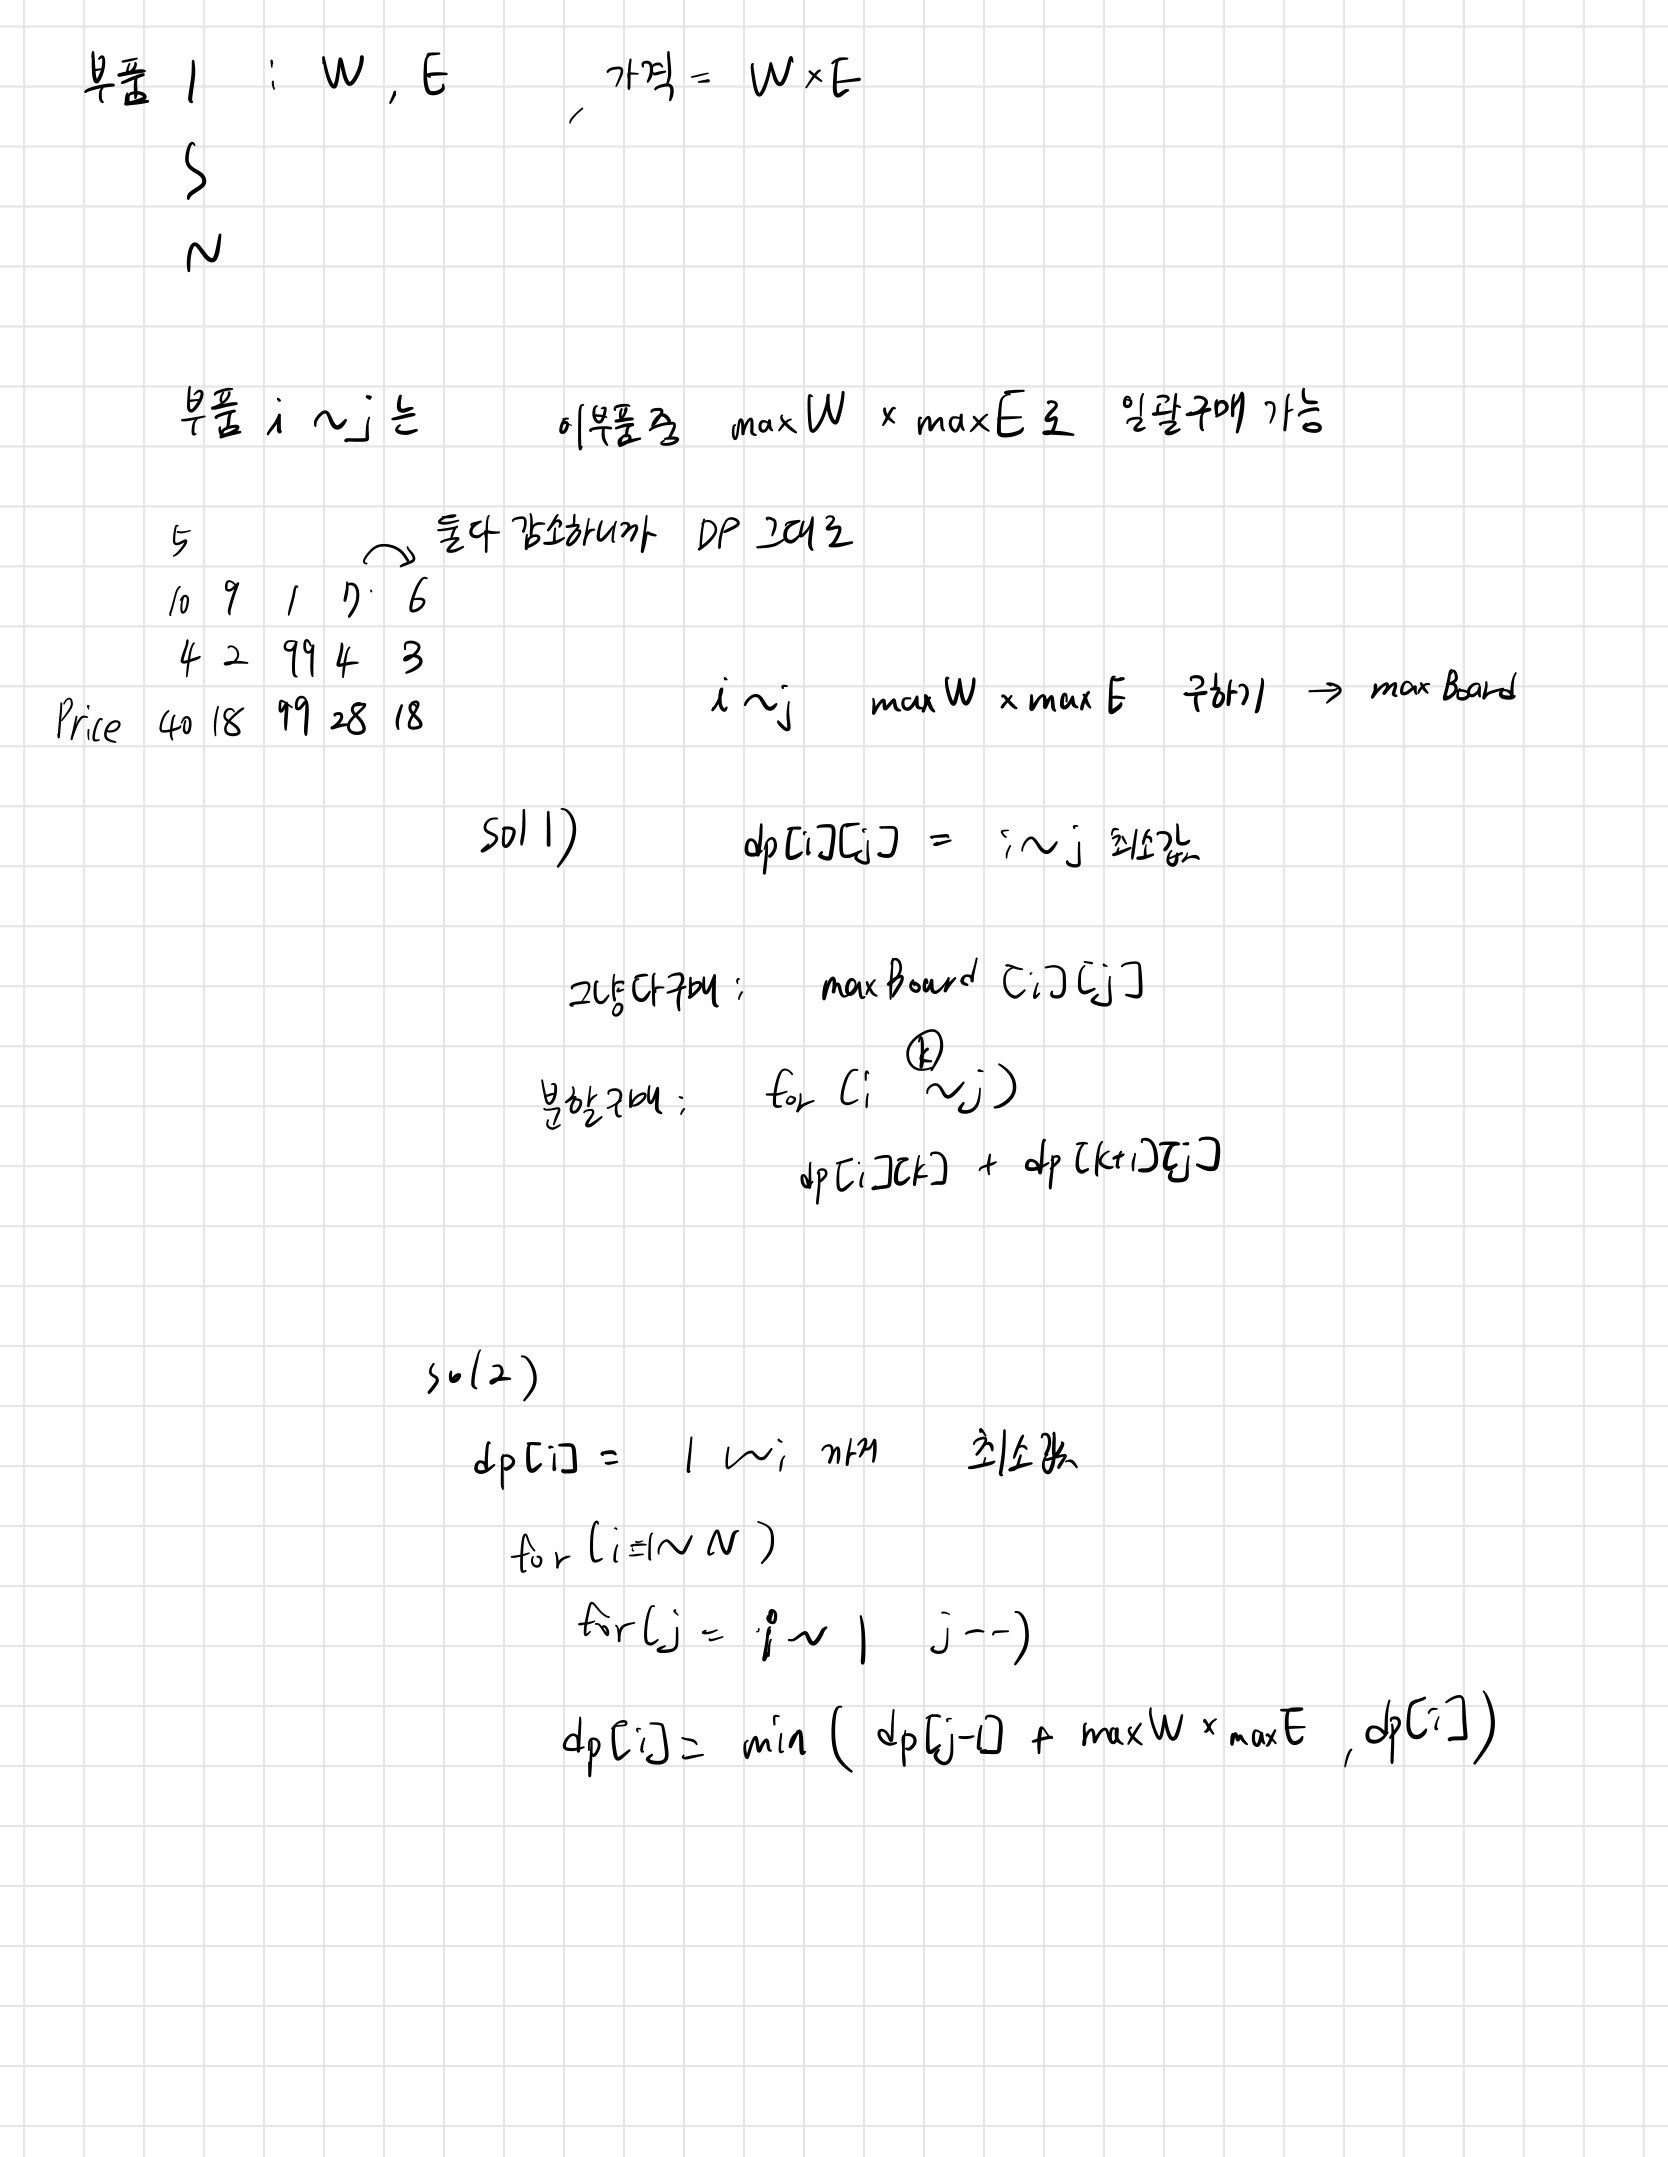 부품 1 : W, E , 가격 = W×E
S
N
부품 i ~ j 는 이부품중 maxW × maxE로 일괄구매 가능
5
둘다 감소하니까 DP 그대로
10 9 1 7 6
4 2 99 4 3
Price 40 18 99 28 18
i ~ j maxW × maxE 구하기 → maxBoard
sol 1) dp[i][j] = i ~ j 최소값
그냥다구매 : maxBoard [i][j]
k
분할구매 : for (i ~ j)
dp[i][k] + dp[k+1][j]
sol 2)
dp[i] = 1 ~ i 까지 최소값
for (i=1 ~ N)
for(j = i ~ 1 j--)
dp[i] = min ( dp[j-1] + maxW × maxE , dp[i])